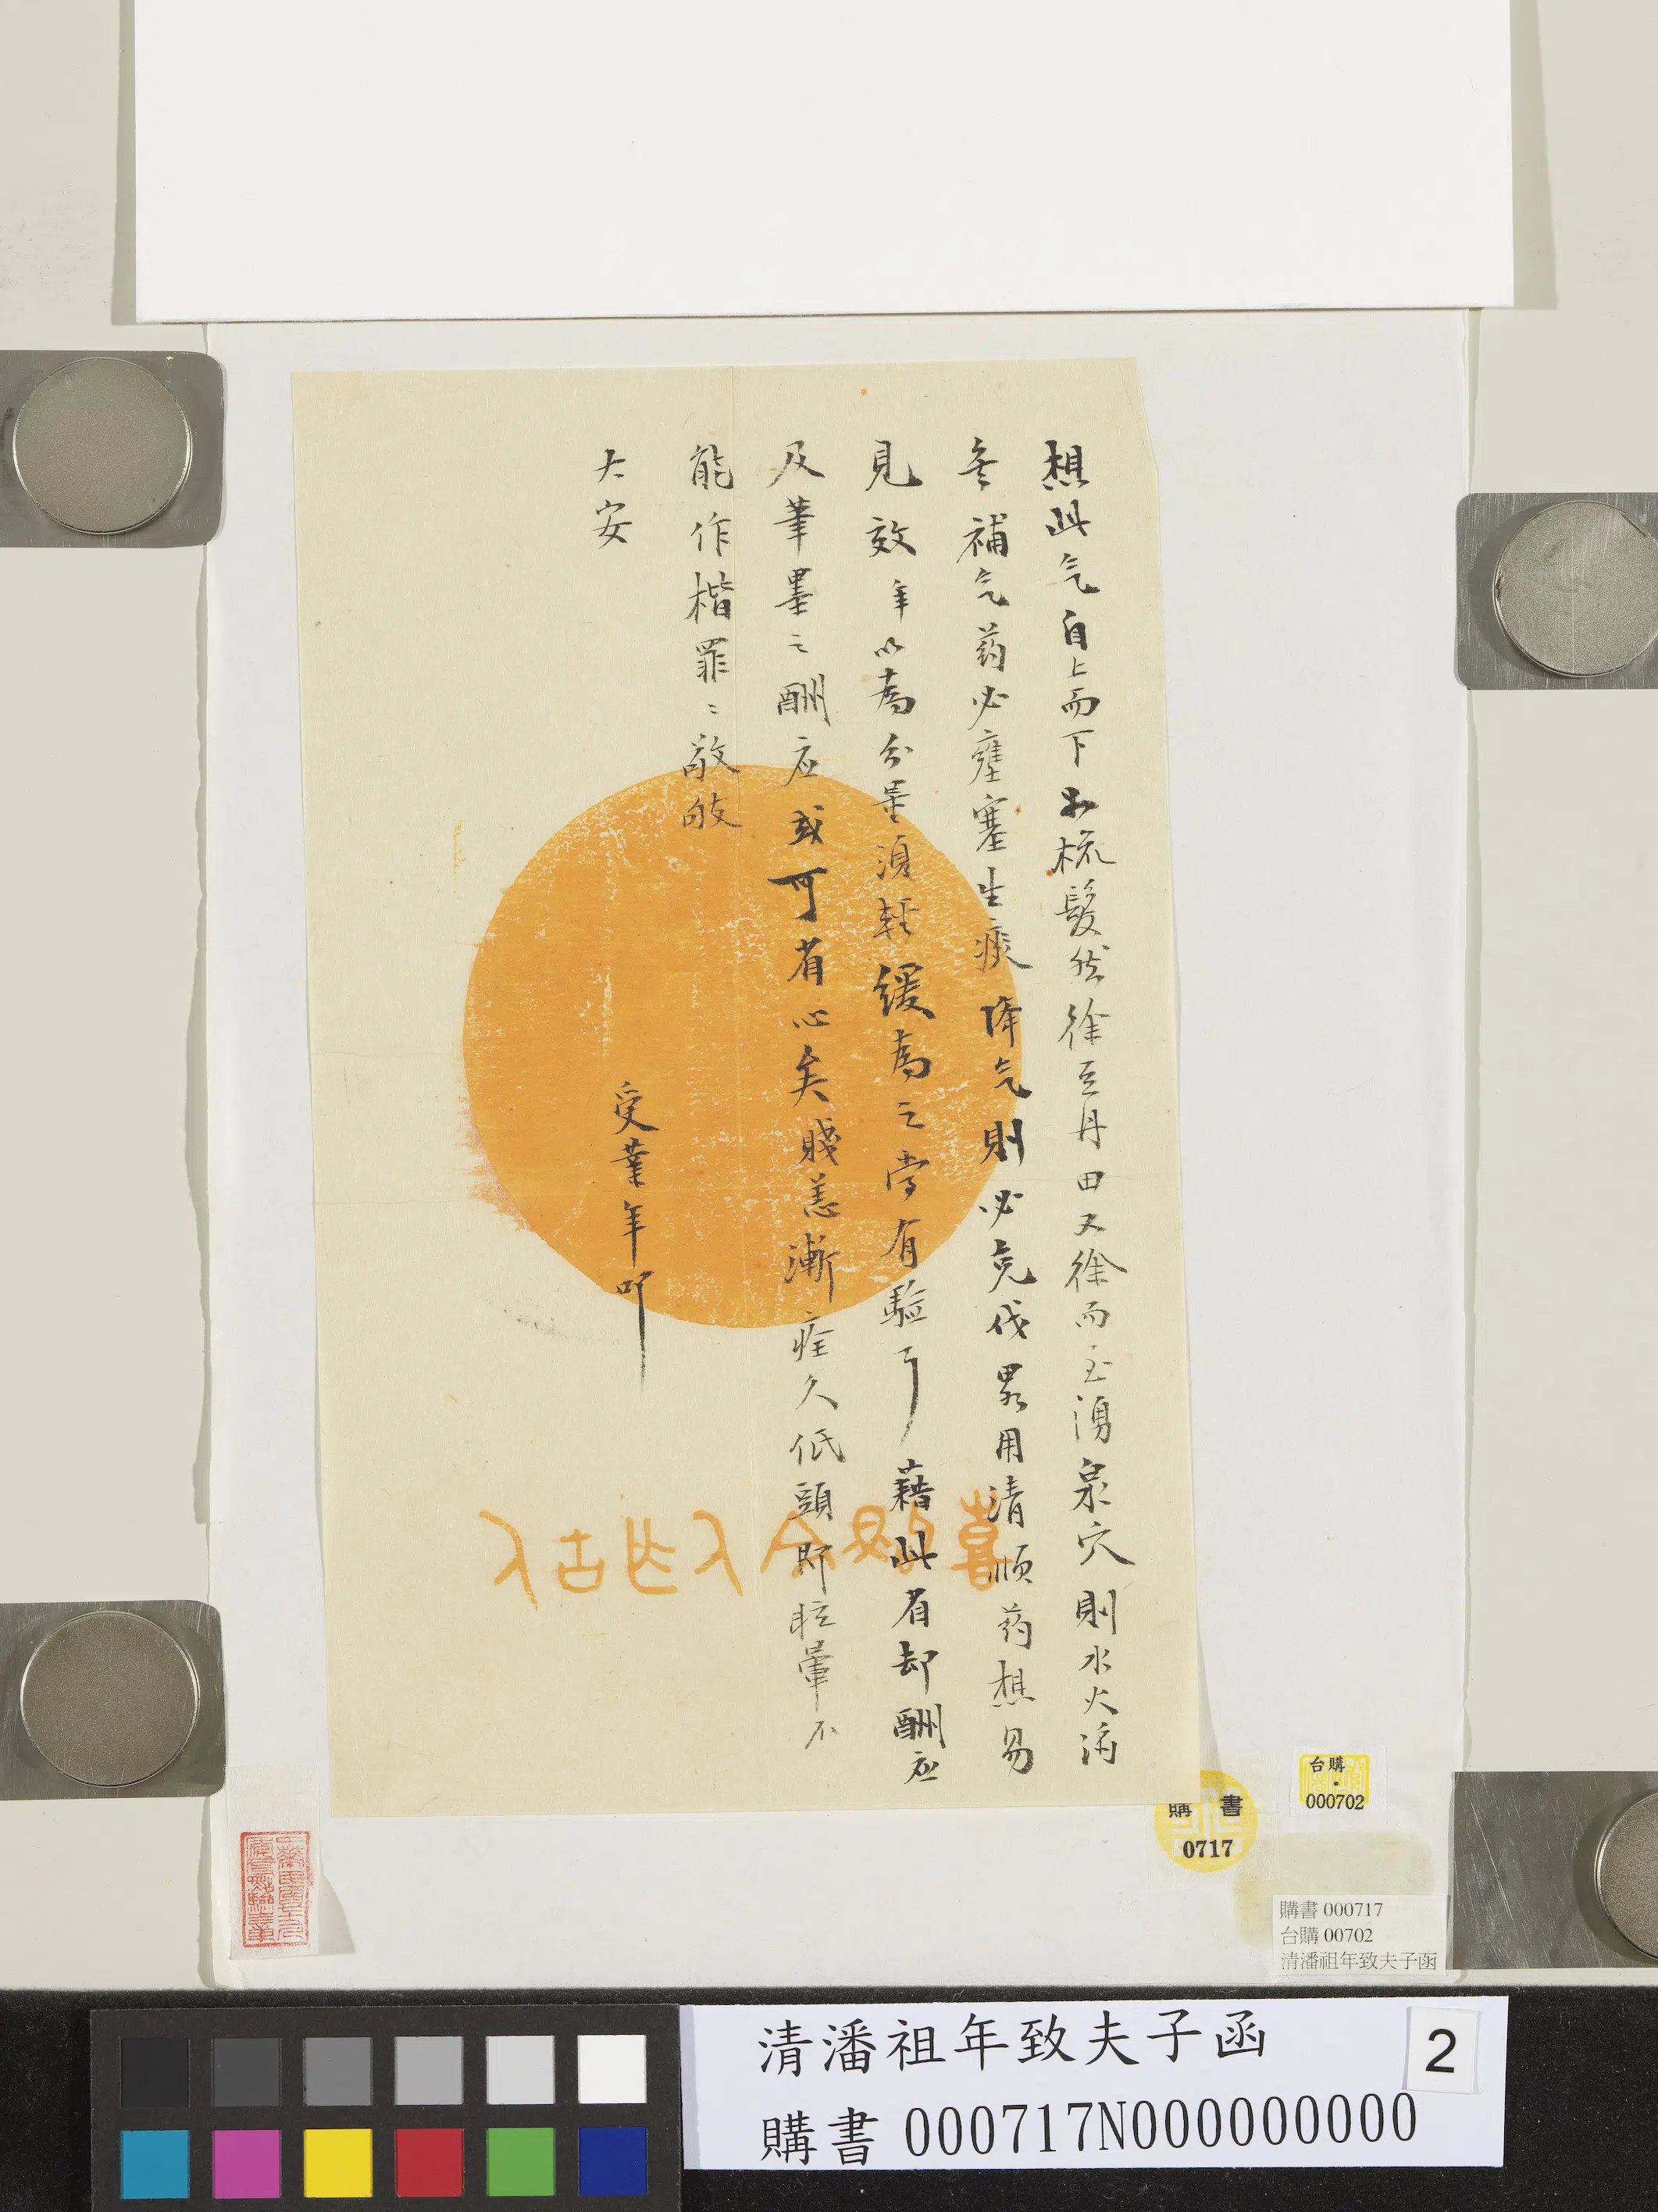 想此气自上而下如梳髮然徐至丹田又徐而至湧泉穴則水火濟
矣補气药必壅塞生痰降气則必克伐累用清順药想易
見效年以為分量須輕緩為之當有驗耳藉此省却酬应
及筆墨之酬应或可省心矣賤恙漸痊久低頭即眩暈不
能作楷罪〻敬敂
大安
受業年叩
書
購
0717
台購
000702
購書 000717
台購 00702
清潘祖年致夫子函
清潘祖年致夫子函
2
購書 000717N000000000